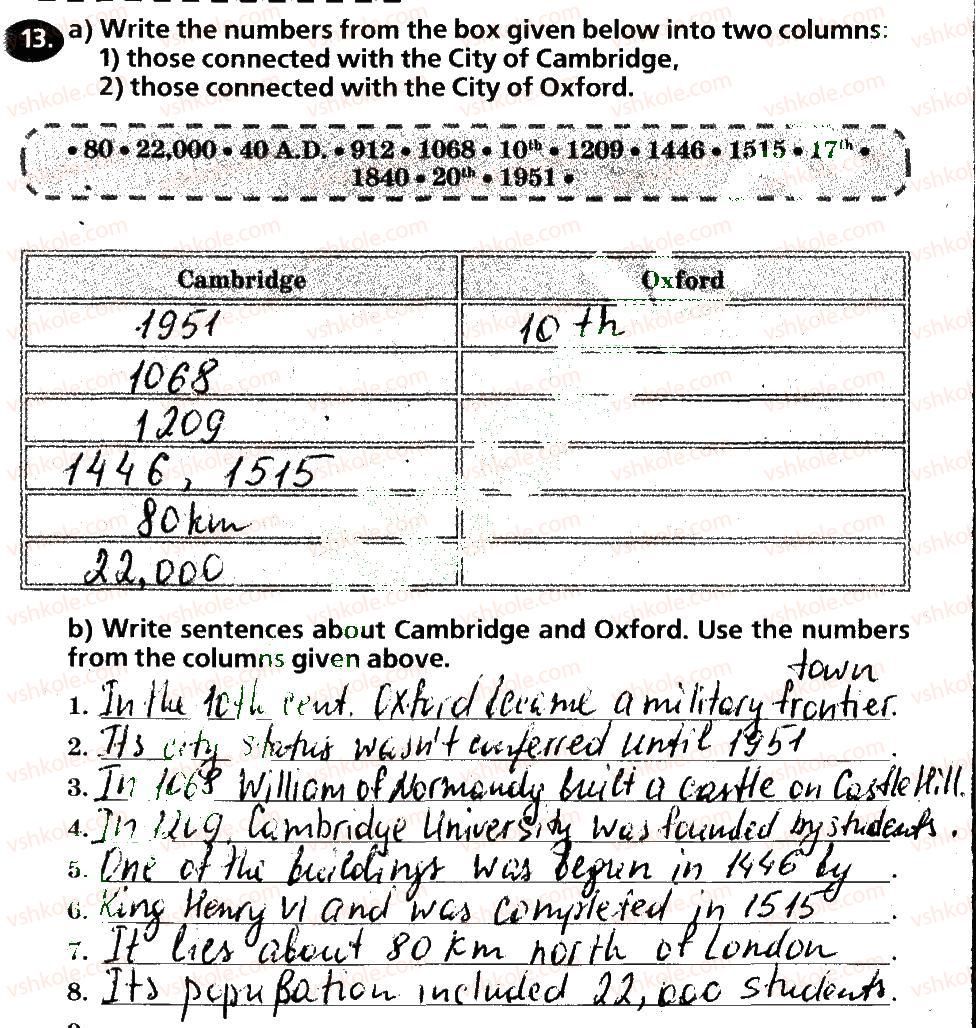 13. a) Write the numbers from the box given below into two columns:
1) those connected with the City of Cambridge,
2) those connected with the City of Oxford.
• 80 • 22,000 • 40 A.D. • 912 • 1068 • 10th • 1209 • 1446 • 1515 • 17th •
1840 • 20th • 1951 •
Cambridge Oxford
1951 10 th
1068
1209
1446, 1515
80 km
22,000
b) Write sentences about Cambridge and Oxford. Use the numbers
from the columns given above.
town
1. In the 10th cent. Oxford became a military frontier.
2. Its city status wasn't conferred until 1951.
3. In 1068 William of Normandy built a castle on Castle Hill.
4. In 1209, Cambridge University was founded by students.
5. One of the buildings was begun in 1446 by.
6. King Henry VI and was completed in 1515.
7. It lies about 80 km north of London.
8. Its population included 22,000 students.